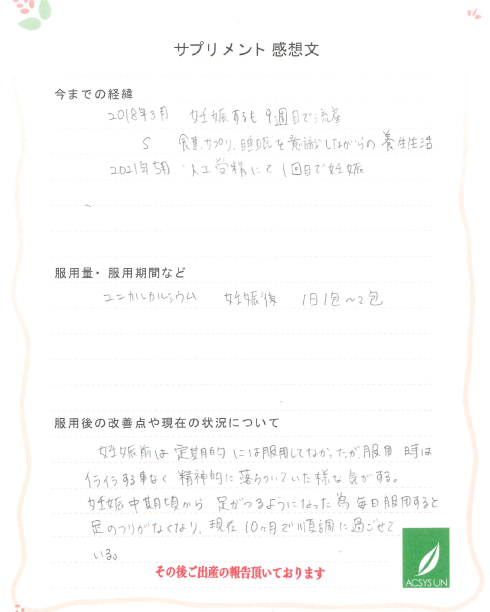 サプリメント 感想文
今までの経緯
2018年3月 妊娠するも 9週目で流産
S 食事、サプリ、睡眠を意識しながらの 養生生活
2021年5月 人工受精にて 1回目で妊娠
服用量・服用期間など
ユニカルカルシウム 妊娠後 1日1包〜2包
服用後の改善点や現在の状況について
妊娠前は定期的には服用してなかったが、服用 時は
イライラする事なく 精神的に落ちついていた様な気がする。
妊娠中期頃から 足がつるようになった為 毎日服用すると
足のつりがなくなり、現在10ヶ月で順調に過ごせて
いる。
その後ご出産の報告頂いております
ACSYS UN